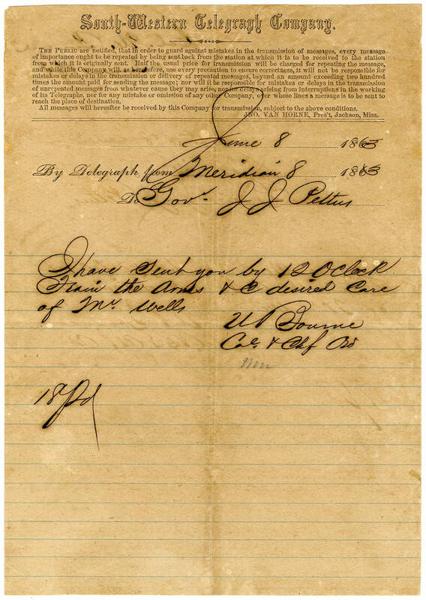 South-Western Telegraph Company.
THE PUBLIC are notified, that in order to guard against mistakes in the transmission of messages, every message
of importance ought to be repeated by being sent back from the station at which it is to be received to the station
from which it is originally sent. Half the usual price for transmission will be charged for repeating the message,
and while this Company will, as heretofore, use every precaution to ensure correctness, it will not be responsible for
mistakes or delays in the transmission or delivery of repeated messages, beyond an amount exceeding five hundred
times the amount paid for sending the message; nor will it be responsible for mistakes or delays in the transmission
of unrepeated messages from whatever cause they may arise, nor for delay arising from interruptions in the working
of its Telegraphs, nor for any mistake or omission of any other Company, over whose lines a message is to be sent to
reach the place of destination.
All messages will hereafter be received by this Company for transmission, subject to the above conditions.
JNO. VAN HORNE, Pres't, Jackson, Miss.
June 8 1863
By Telegraph from Meridian 8 1863
To Gov. J J Pettus
I have sent you by 12 OClock
Train the Arms & C desired Care
of Mr Wells
W Bourne
Col & Chf Ord
18 Pd